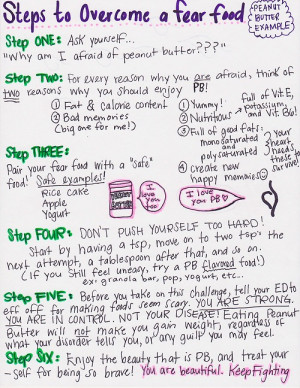 Steps to Overcome a fear food
PEANUT
BUTTER
EXAMPLE!
Step ONE: Ask yourself...
"Why am I afraid of peanut butter???"
Step Two: For every reason why you are afraid, think of
two reasons why you should enjoy PB!
① Fat & calorie content
② Bad memories
(big one for me!)
① Yummy!
② Nutritious
full of Vit E,
Potassium,
and Vit B6!
③ Full of good fats:
monosaturated
and
polysaturated
Your
heart
needs
these to
survive!
④ create new
happy memories
Step THREE:
Pair your fear food with a "safe"
food! Safe examples!
Rice cake
Apple
Yogurt
I
love
you
too
I love
you PB
Step FOUR: DON'T PUSH YOURSELF TOO HARD!
Start by having a tsp, move on to two tsps the
next attempt, a tablespoon after that, and so on.
(if you still feel uneasy, try a PB flavored food!)
ex: granola bar, pop, yogurt, etc...
Step FIVE: Before you take on this challenge, tell your ED to
eff off for making foods seem scary. YOU ARE STRONG.
YOU ARE IN CONTROL. NOT YOUR DISEASE! Eating Peanut
Butter will not make you gain weight, regardless of
what your disorder tells you, or any guilt you may feel.
Step Six: Enjoy the beauty that is PB, and treat your
-self for being so brave! You are beautiful. Keep Fighting